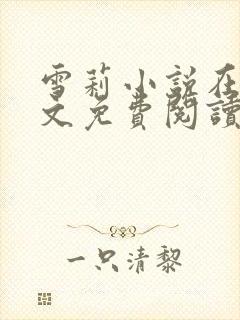 雪莉小説在
文免費閱讀
一只清黎